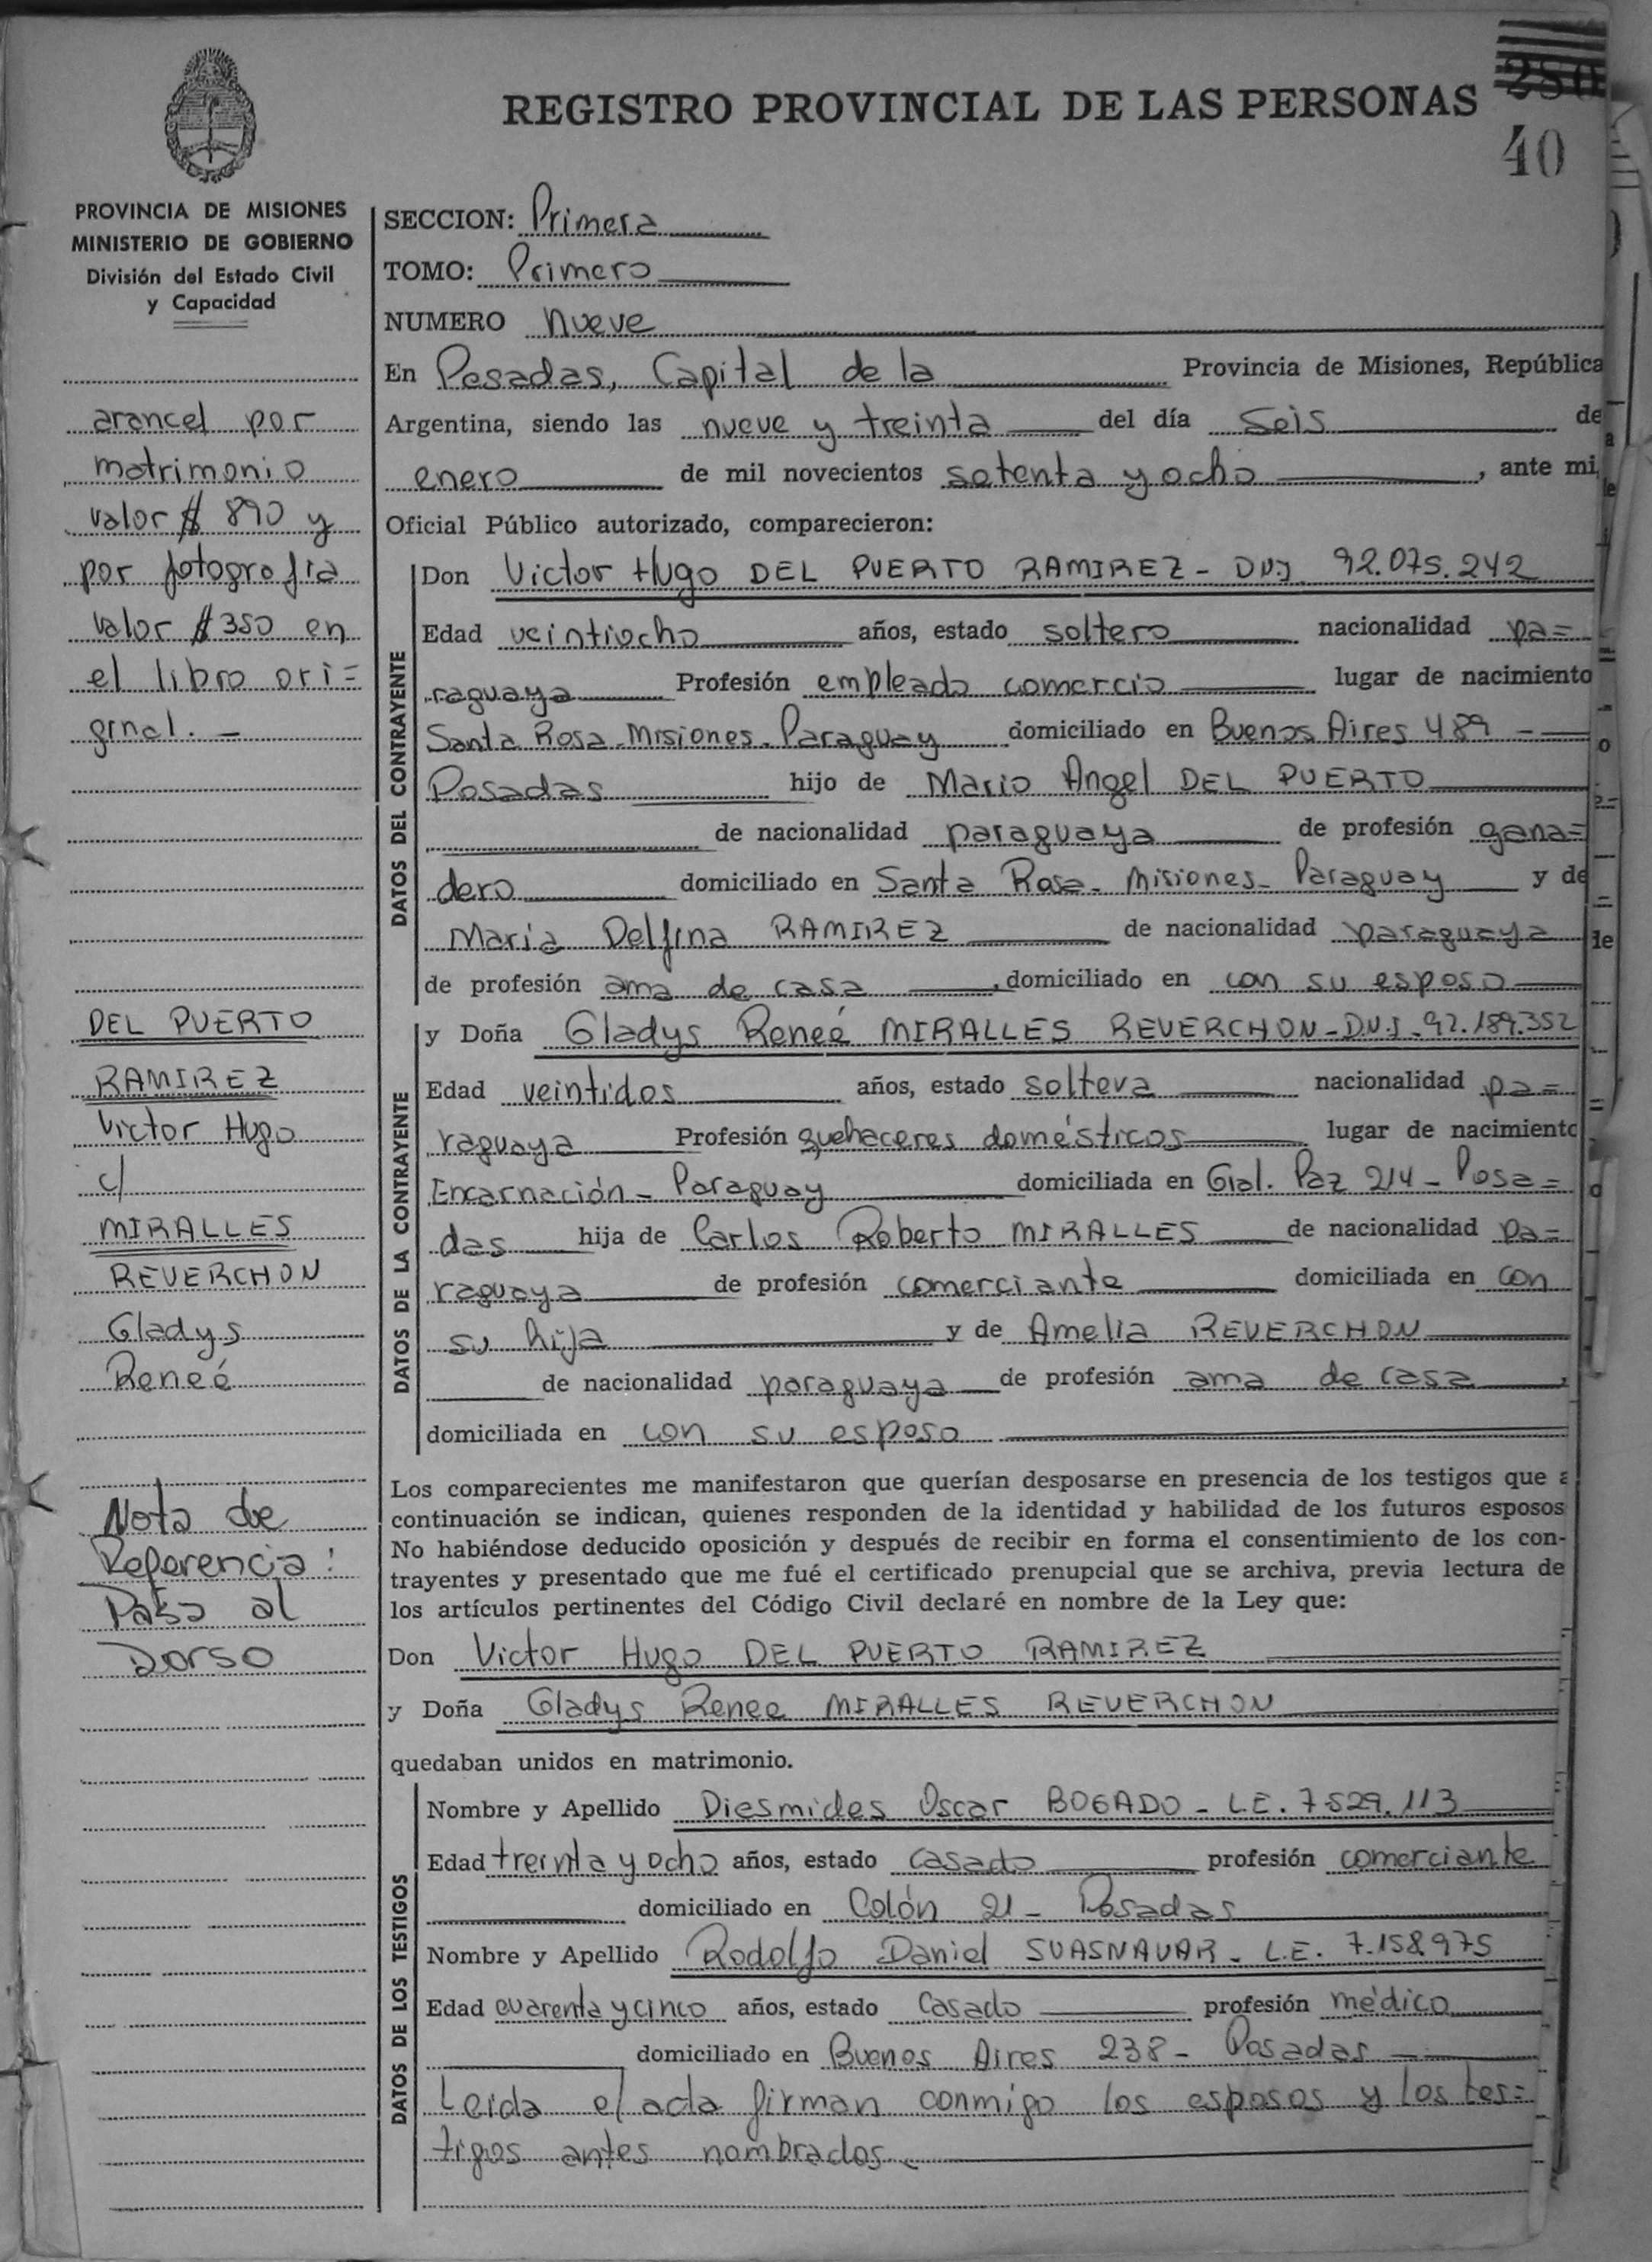 REGISTRO PROVINCIAL DE LAS PERSONAS
280
40
PROVINCIA DE MISIONES
MINISTERIO DE GOBIERNO
División del Estado Civil
y Capacidad
arancel por
matrimonio
valor $ 890 y
por fotografia
valor $ 350 en
el libro ori=
ginal. -
DEL PUERTO
RAMIREZ
Victor Hugo
c/
MIRALLES
REVERCHON
Gladys
Reneé
Nota de
Referencia:
Pasa al
Dorso
SECCION: Primera
TOMO: Primero
NUMERO nueve
En Posadas, Capital de la Provincia de Misiones, República
Argentina, siendo las nueve y treinta del día seis de
enero de mil novecientos setenta y ocho, ante mi,
Oficial Público autorizado, comparecieron:
DATOS DEL CONTRAYENTE
Don Victor Hugo DEL PUERTO RAMIREZ - DNI. 92.075.242
Edad veintiocho años, estado soltero nacionalidad pa=
raguaya Profesión empleado comercio lugar de nacimiento
Santa Rosa-Misiones-Paraguay domiciliado en Buenos Aires 489 -
Posadas hijo de Mario Angel DEL PUERTO
de nacionalidad paraguaya de profesión gana=
dero domiciliado en Santa Rosa- Misiones- Paraguay y de
Maria Delfina RAMIREZ de nacionalidad paraguaya
de profesión ama de casa, domiciliado en con su esposo
DATOS DE LA CONTRAYENTE
y Doña Gladys Reneé MIRALLES REVERCHON-D.N.I.-92.189.352
Edad veintidos años, estado soltera nacionalidad pa=
raguaya Profesión quehaceres domésticos lugar de nacimiento
Encarnación- Paraguay domiciliada en Gral. Paz 214- Posa=
das hija de Carlos Roberto MIRALLES de nacionalidad pa=
raguaya de profesión comerciante domiciliada en con
su hija y de Amelia REVERCHON
de nacionalidad paraguaya de profesión ama de casa,
domiciliada en con su esposo
Los comparecientes me manifestaron que querían desposarse en presencia de los testigos que a
continuación se indican, quienes responden de la identidad y habilidad de los futuros esposos
No habiéndose deducido oposición y después de recibir en forma el consentimiento de los con-
trayentes y presentado que me fué el certificado prenupcial que se archiva, previa lectura de
los artículos pertinentes del Código Civil declaré en nombre de la Ley que:
Don Victor Hugo DEL PUERTO RAMIREZ
y Doña Gladys Renee MIRALLES REVERCHON
quedaban unidos en matrimonio.
DATOS DE LOS TESTIGOS
Nombre y Apellido Diesmides Oscar BOGADO - L.E. 7.529.113
Edad treinta y ocho años, estado casado profesión comerciante
domiciliado en Colón 21- Posadas
Nombre y Apellido Rodolfo Daniel SUASNAVAR- L.E. 7.158.975
Edad cuarenta y cinco años, estado casado profesión médico
domiciliado en Buenos Aires 238- Posadas -
Leida el acta firman conmigo los esposos y los tes=
tigos antes nombrados.-